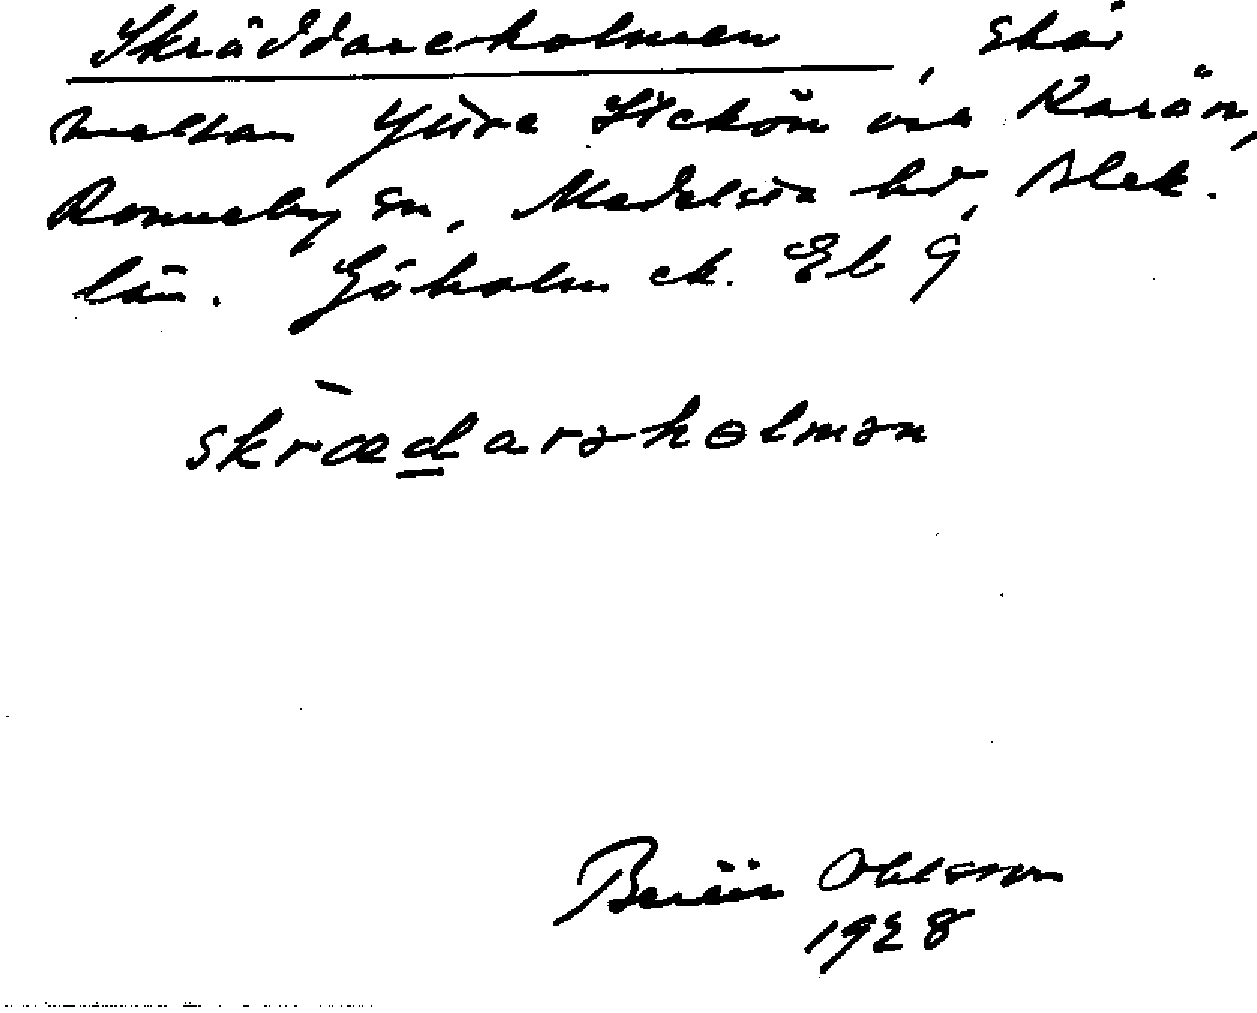 Skräddareholmen, skär
mellan Yttre Stekön och Karön,
Ronneby sn, Medelsta hd, Blek.
län. Göholm ek. Bl 9
skrædarəholmən
Ohlsson
1928